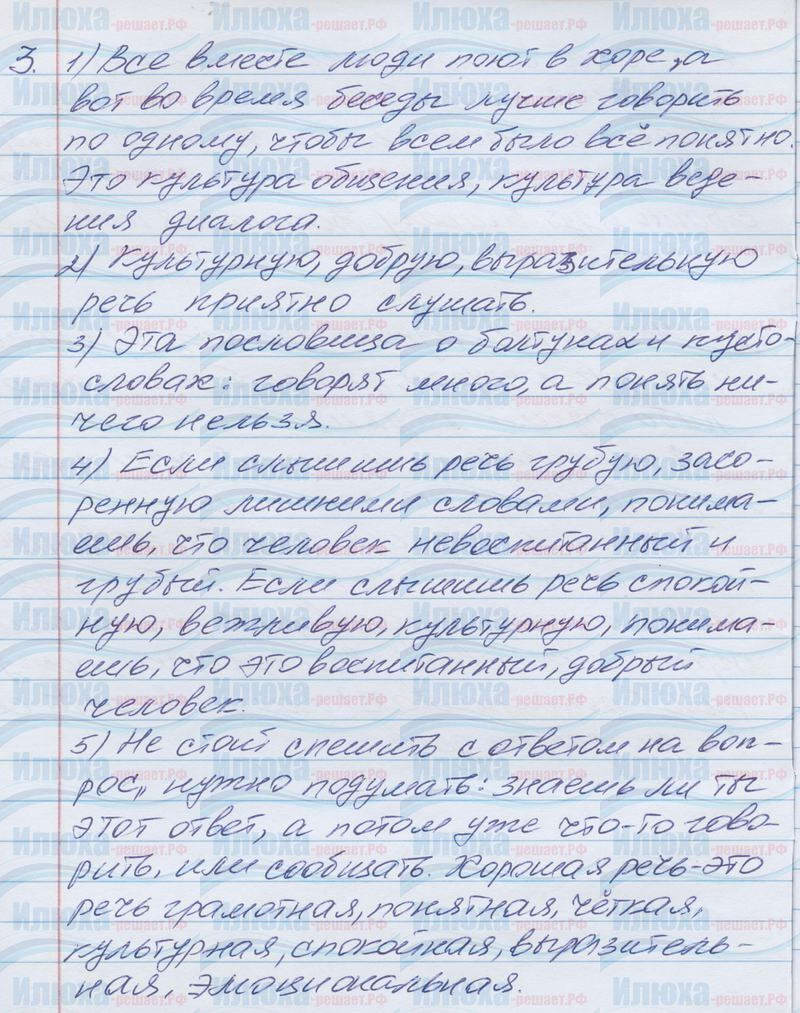 3. 1) Все вместе люди поют в хоре, а
вот во время беседы лучше говорить
по одному, чтобы всем было всё понятно.
Это культура общения, культура веде-
ния диалога.
2) Культурную, добрую, выразительную
речь приятно слушать.
3) Эта пословица о болтунах и пусто-
словах: говорят много, а понять ни-
чего нельзя.
4) Если слышишь речь грубую, засо-
ренную лишними словами, понима-
ешь, что человек невоспитанный и
грубый. Если слышишь речь спокой-
ную, вежливую, культурную, понима-
ешь, что это воспитанный, добрый
человек.
5) Не стоит спешить с ответом на воп-
рос, нужно подумать: знаешь ли ты
этот ответ, а потом уже что-то гово-
рить, или сообщать. Хорошая речь-это
речь грамотная, понятная, чёткая,
культурная, спокойная, выразитель-
ная, эмоциональная.
Илюха-решает.РФ